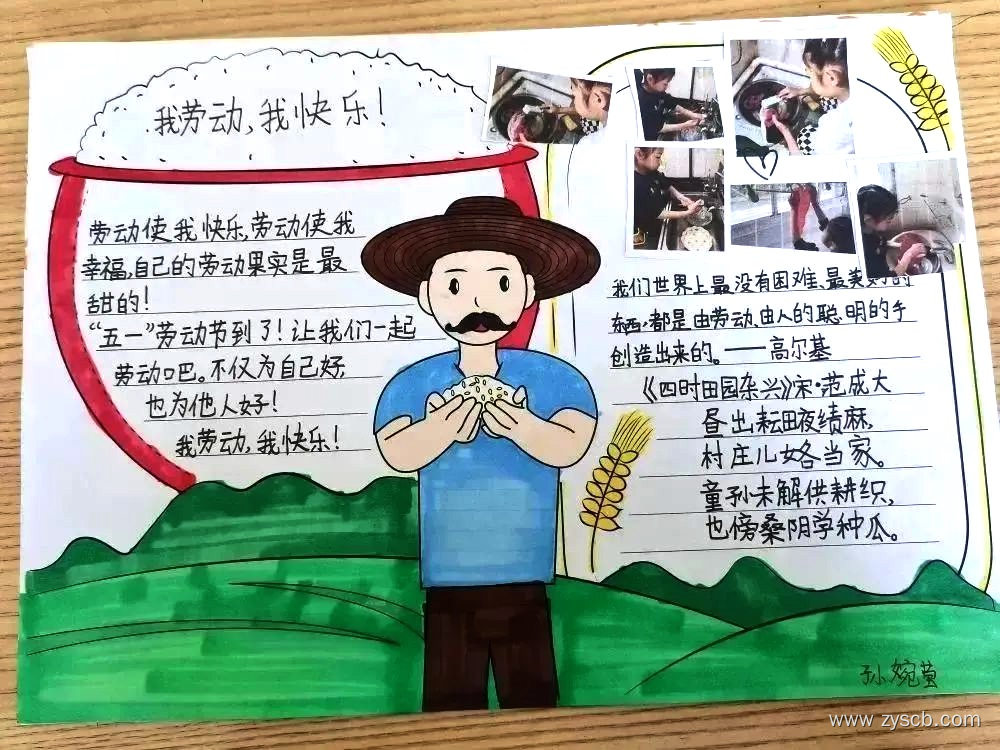 我劳动,我快乐!
劳动使我快乐,劳动使我
幸福,自己的劳动果实是最
甜的!
“五一”劳动节到了!让我们一起
劳动吧。不仅为自己好,
也为他人好!
我劳动,我快乐!
我们世界上最没有困难、最美好的
东西,都是由劳动、由人的聪明的手
创造出来的。——高尔基
《四时田园杂兴》宋·范成大
昼出耘田夜绩麻,
村庄儿女各当家。
童孙未解供耕织,
也傍桑阴学种瓜。
孙婉萤
www.zyscb.com